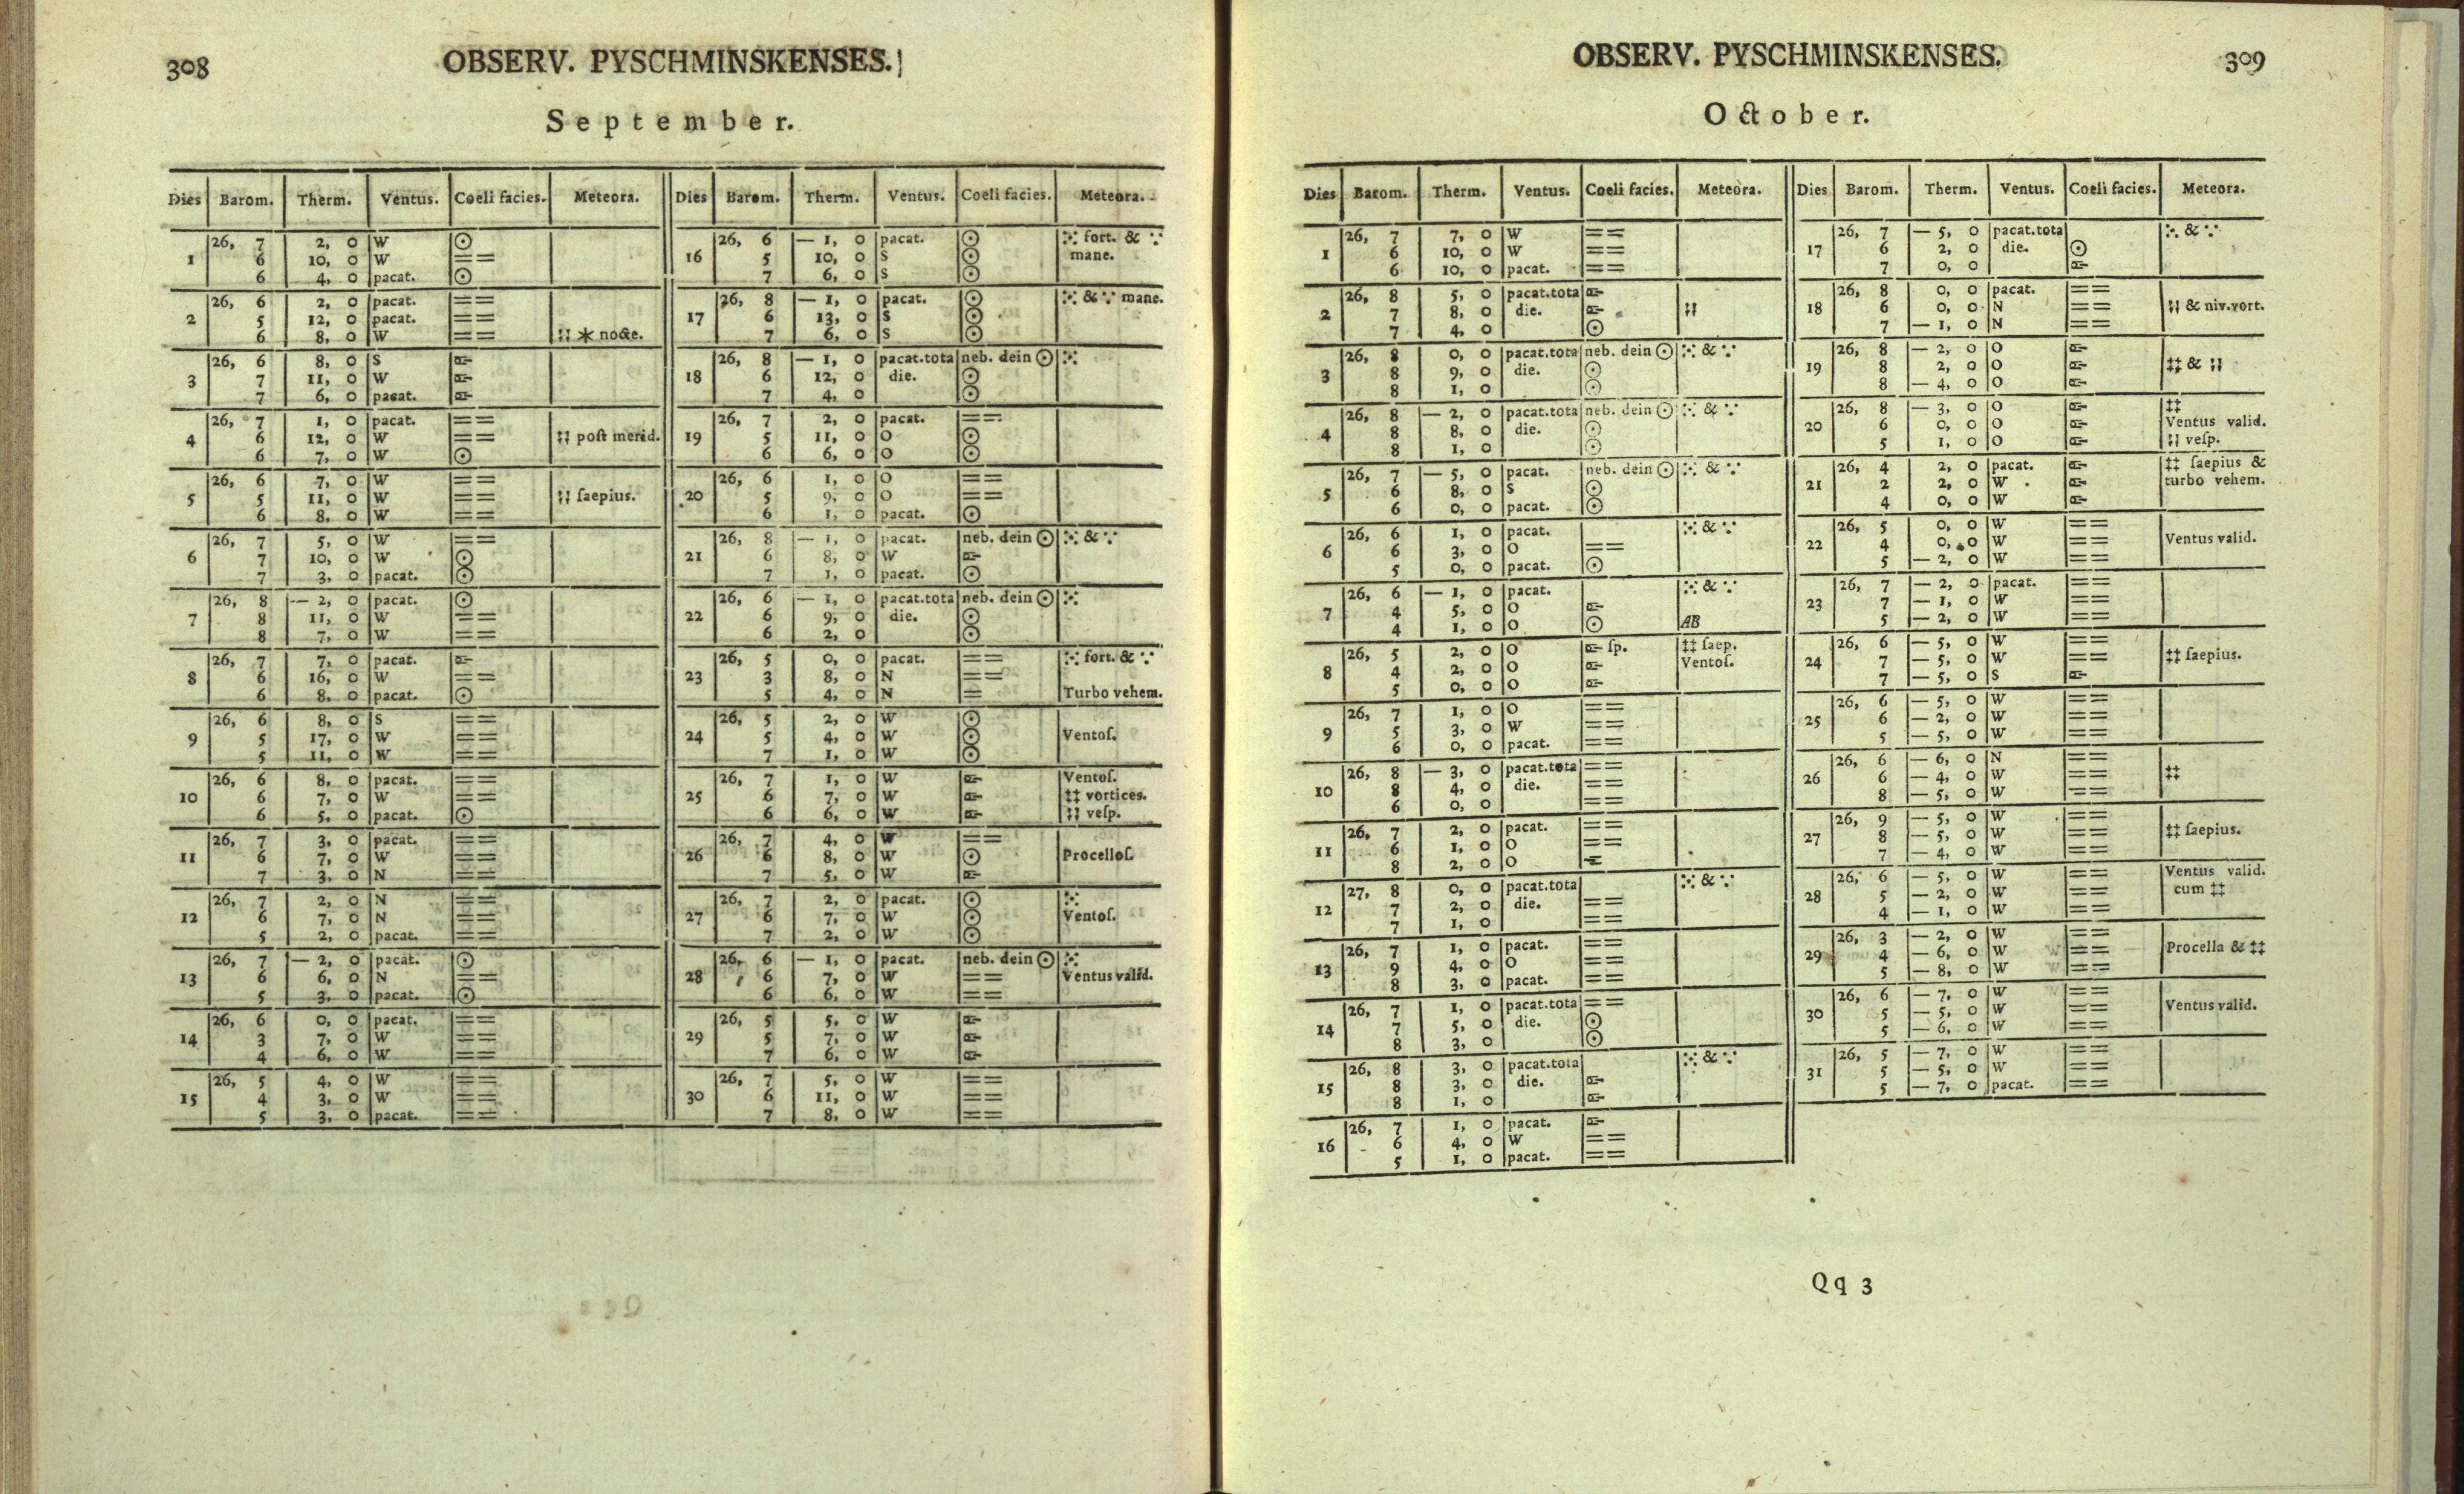 308
OBSERV. PYSCHMINSKENSES.
September.
Dies Barom. Therm. Ventus. Coeli facies. Meteora.
1 26, 7 2, 0 W ☉
6 10, 0 W ==
6 4, 0 pacat. ☉
2 26, 6 2, 0 pacat. ==
5 12, 0 pacat. ==
6 8, 0 W == ⁏⁏ * nocte.
3 26, 6 8, 0 S
7 11, 0 W
7 6, 0 pacat.
4 26, 7 1, 0 pacat. ==
6 12, 0 W == ⁏⁏ poſt merid.
6 7, 0 W ☉
5 26, 6 7, 0 W ==
5 11, 0 W == ⁏⁏ ſaepius.
6 8, 0 W ==
6 26, 7 5, 0 W ==
7 10, 0 W ☉
7 3, 0 pacat. ☉
7 26, 8 — 2, 0 pacat. ☉
8 11, 0 W ==
8 7, 0 W ==
8 26, 7 7, 0 pacat.
6 16, 0 W ==
6 8, 0 pacat. ☉
9 26, 6 8, 0 S ==
5 17, 0 W ==
5 11, 0 W ==
10 26, 6 8, 0 pacat. ==
6 7, 0 W ==
6 5, 0 pacat. ☉
11 26, 7 3, 0 pacat. ==
6 7, 0 W ==
7 3, 0 N ==
12 26, 7 2, 0 N ==
6 7, 0 N ==
5 2, 0 pacat. ==
13 26, 7 — 2, 0 pacat. ☉
6 6, 0 N ==
5 3, 0 pacat. ☉
14 26, 6 0, 0 pacat. ==
3 7, 0 W ==
4 6, 0 W ==
15 26, 5 4, 0 W ==
4 3, 0 W ==
5 3, 0 pacat. ==
Dies Barom. Therm. Ventus. Coeli facies. Meteora.
16 26, 6 — 1, 0 pacat. ☉ ⁙ fort. & ∵
5 10, 0 S ☉ mane.
7 6, 0 S ☉
17 26, 8 — 1, 0 pacat. ☉ ⁙ & ∵ mane.
6 13, 0 S ☉
7 6, 0 S ☉
18 26, 8 — 1, 0 pacat. tota neb. dein ☉ ⁙
6 12, 0 die. ☉
7 4, 0 ☉
19 26, 7 2, 0 pacat. ==
5 11, 0 O ☉
6 6, 0 O ☉
20 26, 6 1, 0 O ==
5 9, 0 O ==
6 1, 0 pacat. ☉
21 26, 8 — 1, 0 pacat. neb. dein ☉ ⁙ & ∵
6 8, 0 W
7 1, 0 pacat. ☉
22 26, 6 — 1, 0 pacat. tota neb. dein ☉ ⁙
6 9, 0 die. ☉
6 2, 0 ☉
23 26, 5 0, 0 pacat. == ⁙ fort. & ∵
3 8, 0 N ==
5 4, 0 N = Turbo vehem.
24 26, 5 2, 0 W ☉
5 4, 0 W ☉ Ventoſ.
7 1, 0 W ☉
25 26, 7 1, 0 W Ventoſ.
6 7, 0 W ‡‡ vortices.
6 6, 0 W ⁏⁏ veſp.
26 26, 7 4, 0 W ==
6 8, 0 W ☉ Procelloſ.
7 5, 0 W
27 26, 7 2, 0 pacat. ☉ ⁙
6 7, 0 W ☉ Ventoſ.
7 2, 0 W ☉
28 26, 6 — 1, 0 pacat. neb. dein ☉ ⁙
6 7, 0 W == Ventus valid.
6 6, 0 W ==
29 26, 5 5, 0 W
5 7, 0 W
7 6, 0 W
30 26, 7 5, 0 W ==
6 11, 0 W ==
7 8, 0 W ==
OBSERV. PYSCHMINSKENSES.
309
October.
Dies Barom. Therm. Ventus. Coeli facies. Meteora.
1 26, 7 7, 0 W ==
6 10, 0 W ==
6 10, 0 pacat. ==
2 26, 8 5, 0 pacat. tota
7 8, 0 die. ⁏⁏
7 4, 0 ☉
3 26, 8 0, 0 pacat. tota neb. dein ☉ ⁙ & ∵
8 9, 0 die. ☉
8 1, 0 ☉
4 26, 8 — 2, 0 pacat. tota neb. dein ☉ ⁙ & ∵
8 8, 0 die. ☉
8 1, 0 ☉
5 26, 7 — 5, 0 pacat. neb. dein ☉ ⁙ & ∵
6 8, 0 S ☉
6 0, 0 pacat. ☉
6 26, 6 1, 0 pacat. ⁙ & ∵
6 3, 0 O ==
5 0, 0 pacat. ☉
7 26, 6 — 1, 0 pacat. ⁙ & ∵
4 5, 0 O
4 1, 0 O ☉ AB
8 26, 5 2, 0 O ſp. ‡‡ ſaep.
4 2, 0 O Ventoſ.
5 0, 0 O
9 26, 7 1, 0 O ==
5 3, 0 W ==
6 0, 0 pacat. ==
10 26, 8 — 3, 0 pacat. tota ==
8 4, 0 die. ==
6 0, 0 ==
11 26, 7 2, 0 pacat. ==
6 1, 0 O ==
8 2, 0 O
12 27, 8 0, 0 pacat. tota ⁙ & ∵
7 2, 0 die. ==
7 1, 0 ==
13 26, 7 1, 0 pacat. ==
9 4, 0 O ==
8 3, 0 pacat. ==
14 26, 7 1, 0 pacat. tota ==
7 5, 0 die. ☉
8 3, 0 ☉
15 26, 8 3, 0 pacat. tota ⁙ & ∵
8 3, 0 die.
8 1, 0
16 26, 7 1, 0 pacat.
6 4, 0 W ==
5 1, 0 pacat. ==
Dies Barom. Therm. Ventus. Coeli facies. Meteora.
17 26, 7 — 5, 0 pacat. tota ⁙ & ∵
6 2, 0 die. ☉
7 0, 0
18 26, 8 0, 0 pacat. ==
6 0, 0 N == ⁏⁏ & niv. vort.
7 — 1, 0 N ==
19 26, 8 — 2, 0 O
8 2, 0 O ‡‡ & ⁏⁏
8 — 4, 0 O
20 26, 8 — 3, 0 O ‡‡
6 0, 0 O Ventus valid.
5 1, 0 O ⁏⁏ veſp.
21 26, 4 2, 0 pacat. ‡‡ ſaepius &
2 2, 0 W turbo vehem.
4 0, 0 W
22 26, 5 0, 0 W ==
4 0, 0 W == Ventus valid.
5 — 2, 0 W ==
23 26, 7 — 2, 0 pacat. ==
7 — 1, 0 W ==
5 — 2, 0 W ==
24 26, 6 — 5, 0 W ==
7 — 5, 0 W == ‡‡ ſaepius.
7 — 5, 0 S
25 26, 6 — 5, 0 W ==
6 — 2, 0 W ==
5 — 5, 0 W ==
26 26, 6 — 6, 0 N ==
6 — 4, 0 W == ‡‡
8 — 5, 0 W ==
27 26, 9 — 5, 0 W ==
8 — 5, 0 W == ‡‡ ſaepius.
7 — 4, 0 W ==
28 26, 6 — 5, 0 W == Ventus valid.
5 — 2, 0 W == cum ‡‡
4 — 1, 0 W ==
29 26, 3 — 2, 0 W ==
4 — 6, 0 W == Procella & ‡‡
5 — 8, 0 W ==
30 26, 6 — 7, 0 W ==
5 — 5, 0 W == Ventus valid.
5 — 6, 0 W ==
31 26, 5 — 7, 0 W ==
5 — 5, 0 W ==
5 — 7, 0 pacat. ==
Qq 3